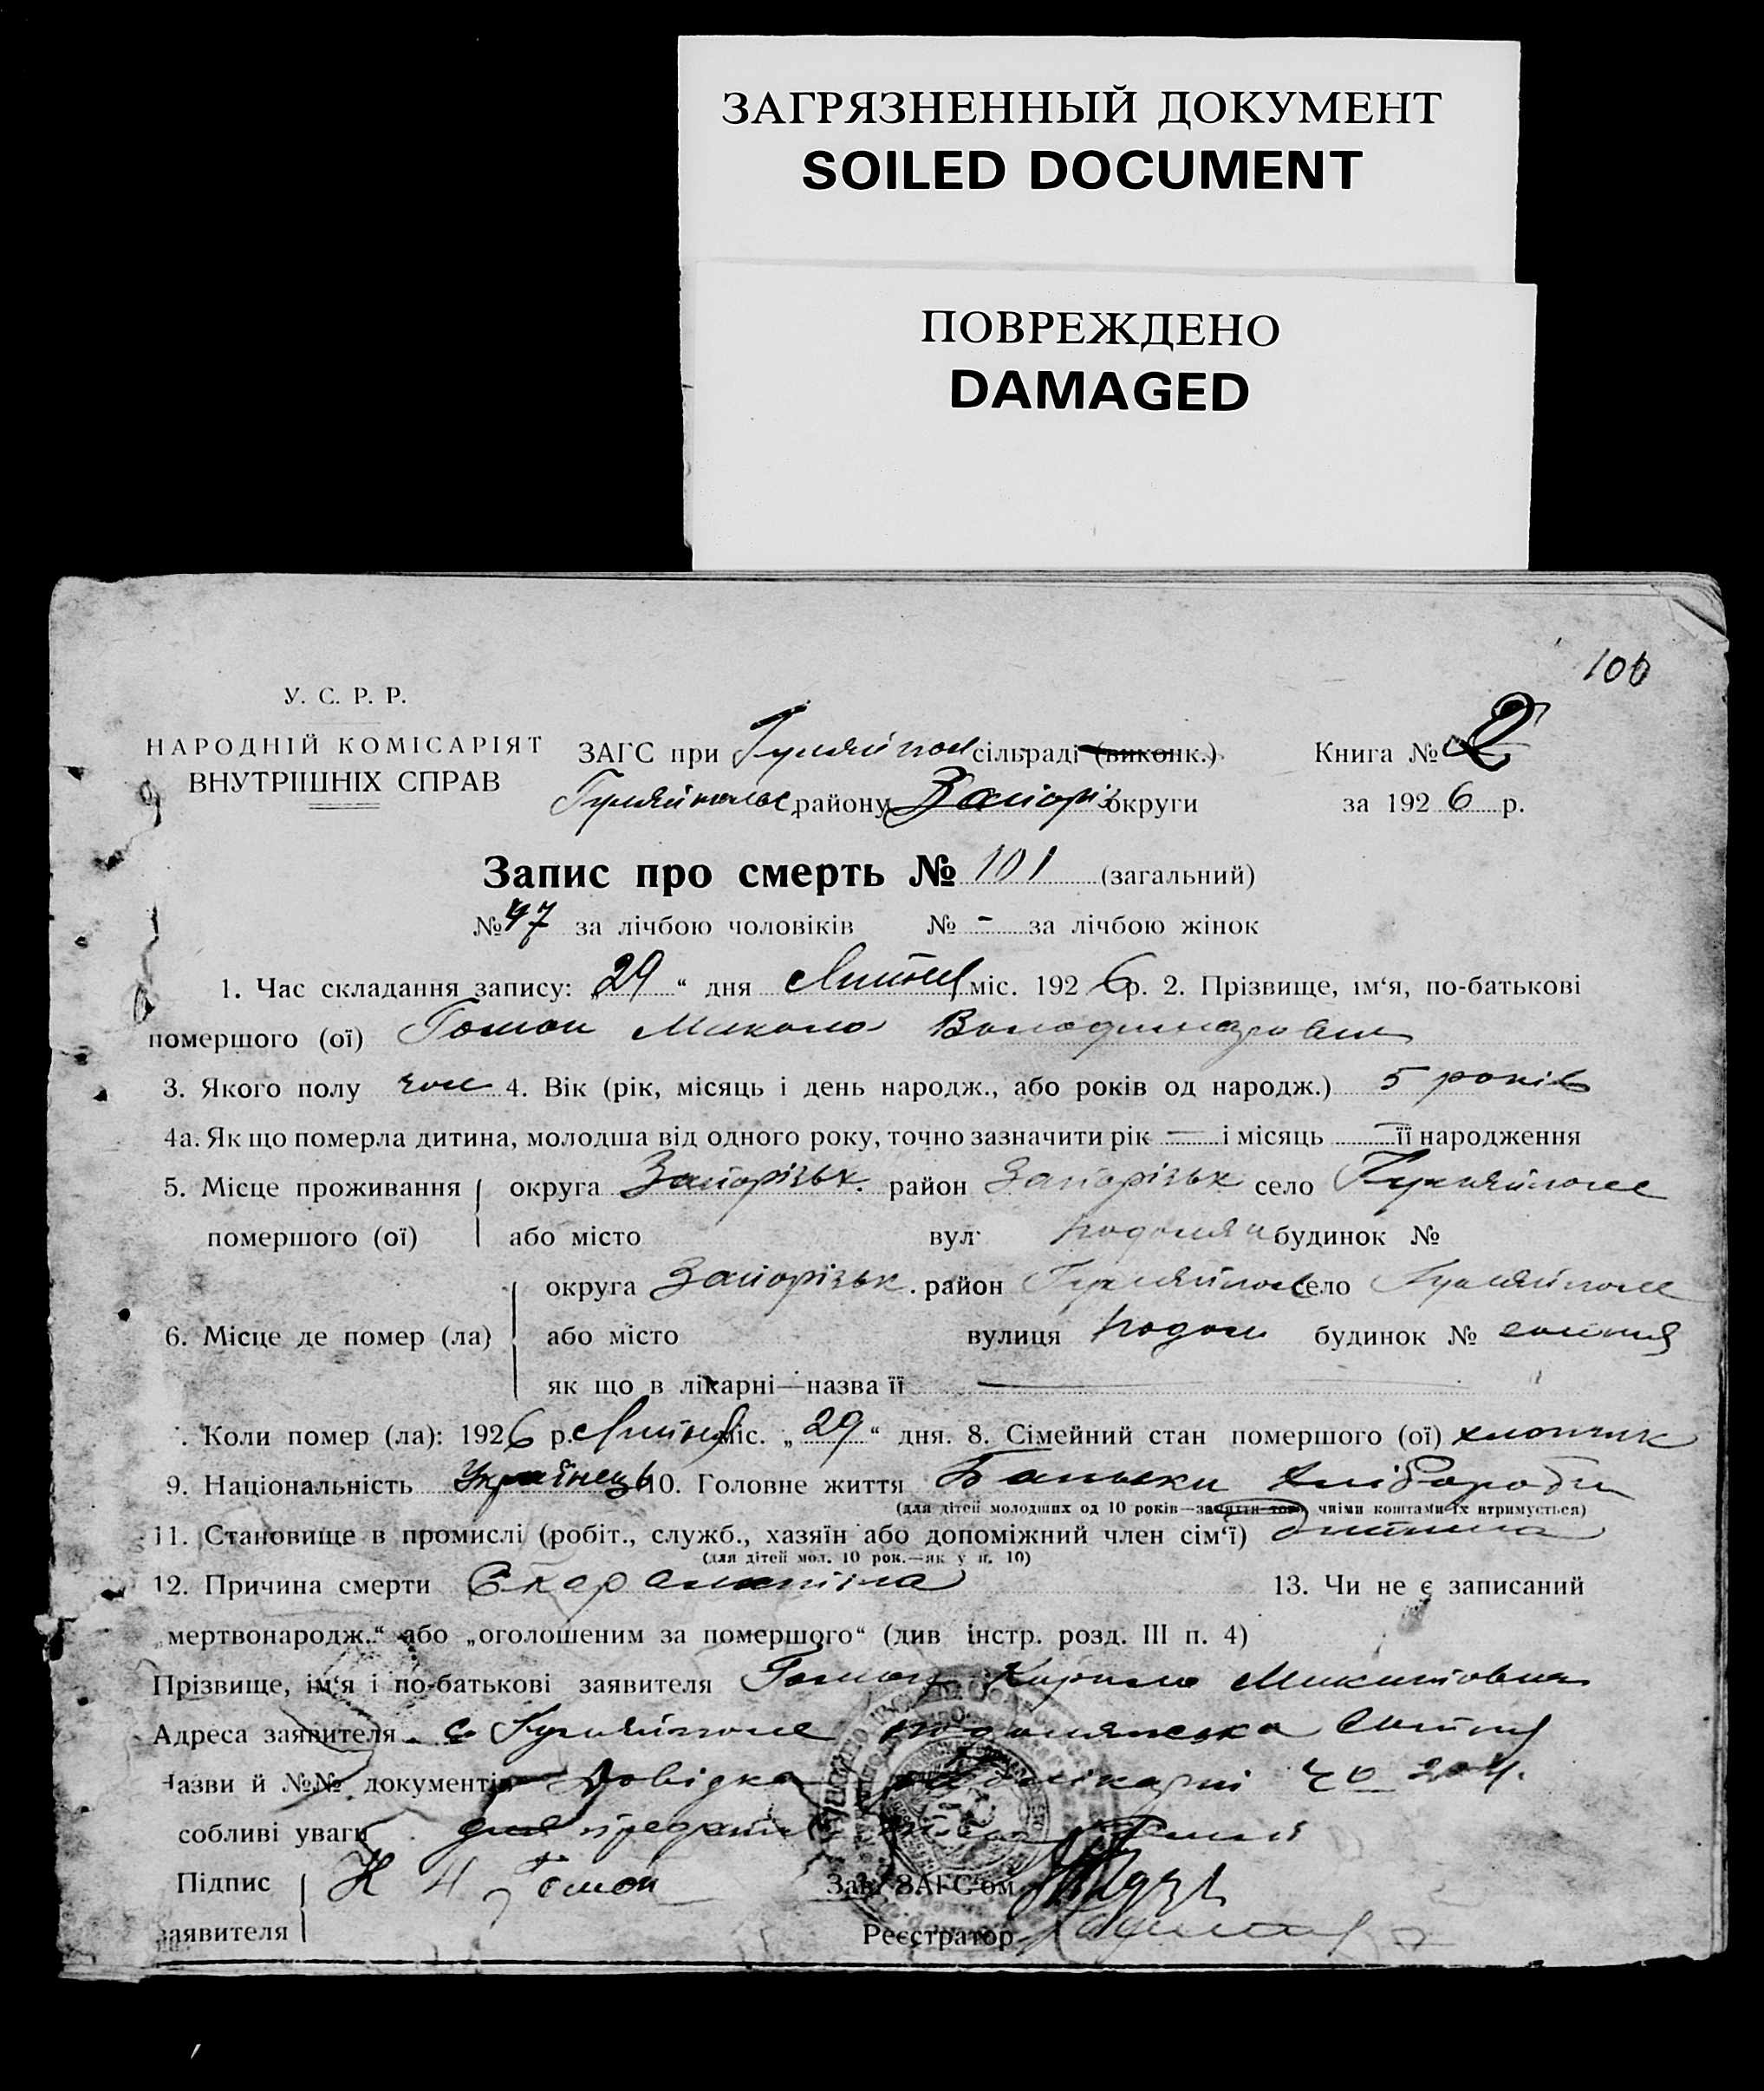 ЗАГРЯЗНЕННЫЙ ДОКУМЕНТ
SOILED DOCUMENT
ПОВРЕЖДЕНО
DAMAGED
100
У. С. Р. Р.
НАРОДНІЙ КОМІСАРІЯТ
ВНУТРІШНІХ СПРАВ
ЗАГС при Гуляйпол сільраді (виконк.)
Гуляйпольс району Запоріз округи
Книга № 2
за 1926 р.
Запис про смерть № 101 (загальний)
№ 47 за лічбою чоловіків № - за лічбою жінок
1. Час складання запису: „29“ дня Липня міс. 1926 р. 2. Прізвище, ім‘я, по-батькові
помершого (ої) Гомон Микола Володимирович
3. Якого полу чол 4. Вік (рік, місяць і день народж., або років од народж.) 5 років
4а. Як що померла дитина, молодша від одного року, точно зазначити рік — і місяць — її народження
5. Місце проживання округа Запорізьк. район Запорізьк село Гуляйполе
помершого (ої) або місто вул. будинок №
округа Запорізьк. район Гуляйпол село Гуляйполе
6. Місце де помер (ла) або місто вулиця Подол будинок №
як що в лікарні—назва її —
Коли помер (ла): 1926 р. Липня міс. „29“ дня. 8. Сімейний стан помершого (ої) хлопчик
9. Національність Українець 10. Головне життя Батьки Хлібороби
(для дітей молодших од 10 років—заняття того, чиїми коштами їх втримується)
11. Становище в промислі (робіт., служб., хазяїн або допоміжний член сім‘ї) дитина
(для дітей мол. 10 рок.—як у п. 10)
12. Причина смерти Скарлатина 13. Чи не є записаний
„мертвонародж.“ або „оголошеним за помершого“ (див інстр. розд. III п. 4)
Прізвище, ім‘я і по-батькові заявителя Гомон Микитовна
Адреса заявителя с Гуляйполе подолянська
Назви й №№ документів Довідка лікарні
собливі уваги
Підпис Гомон Зав. ЗАГС‘ом
заявителя Реєстратор